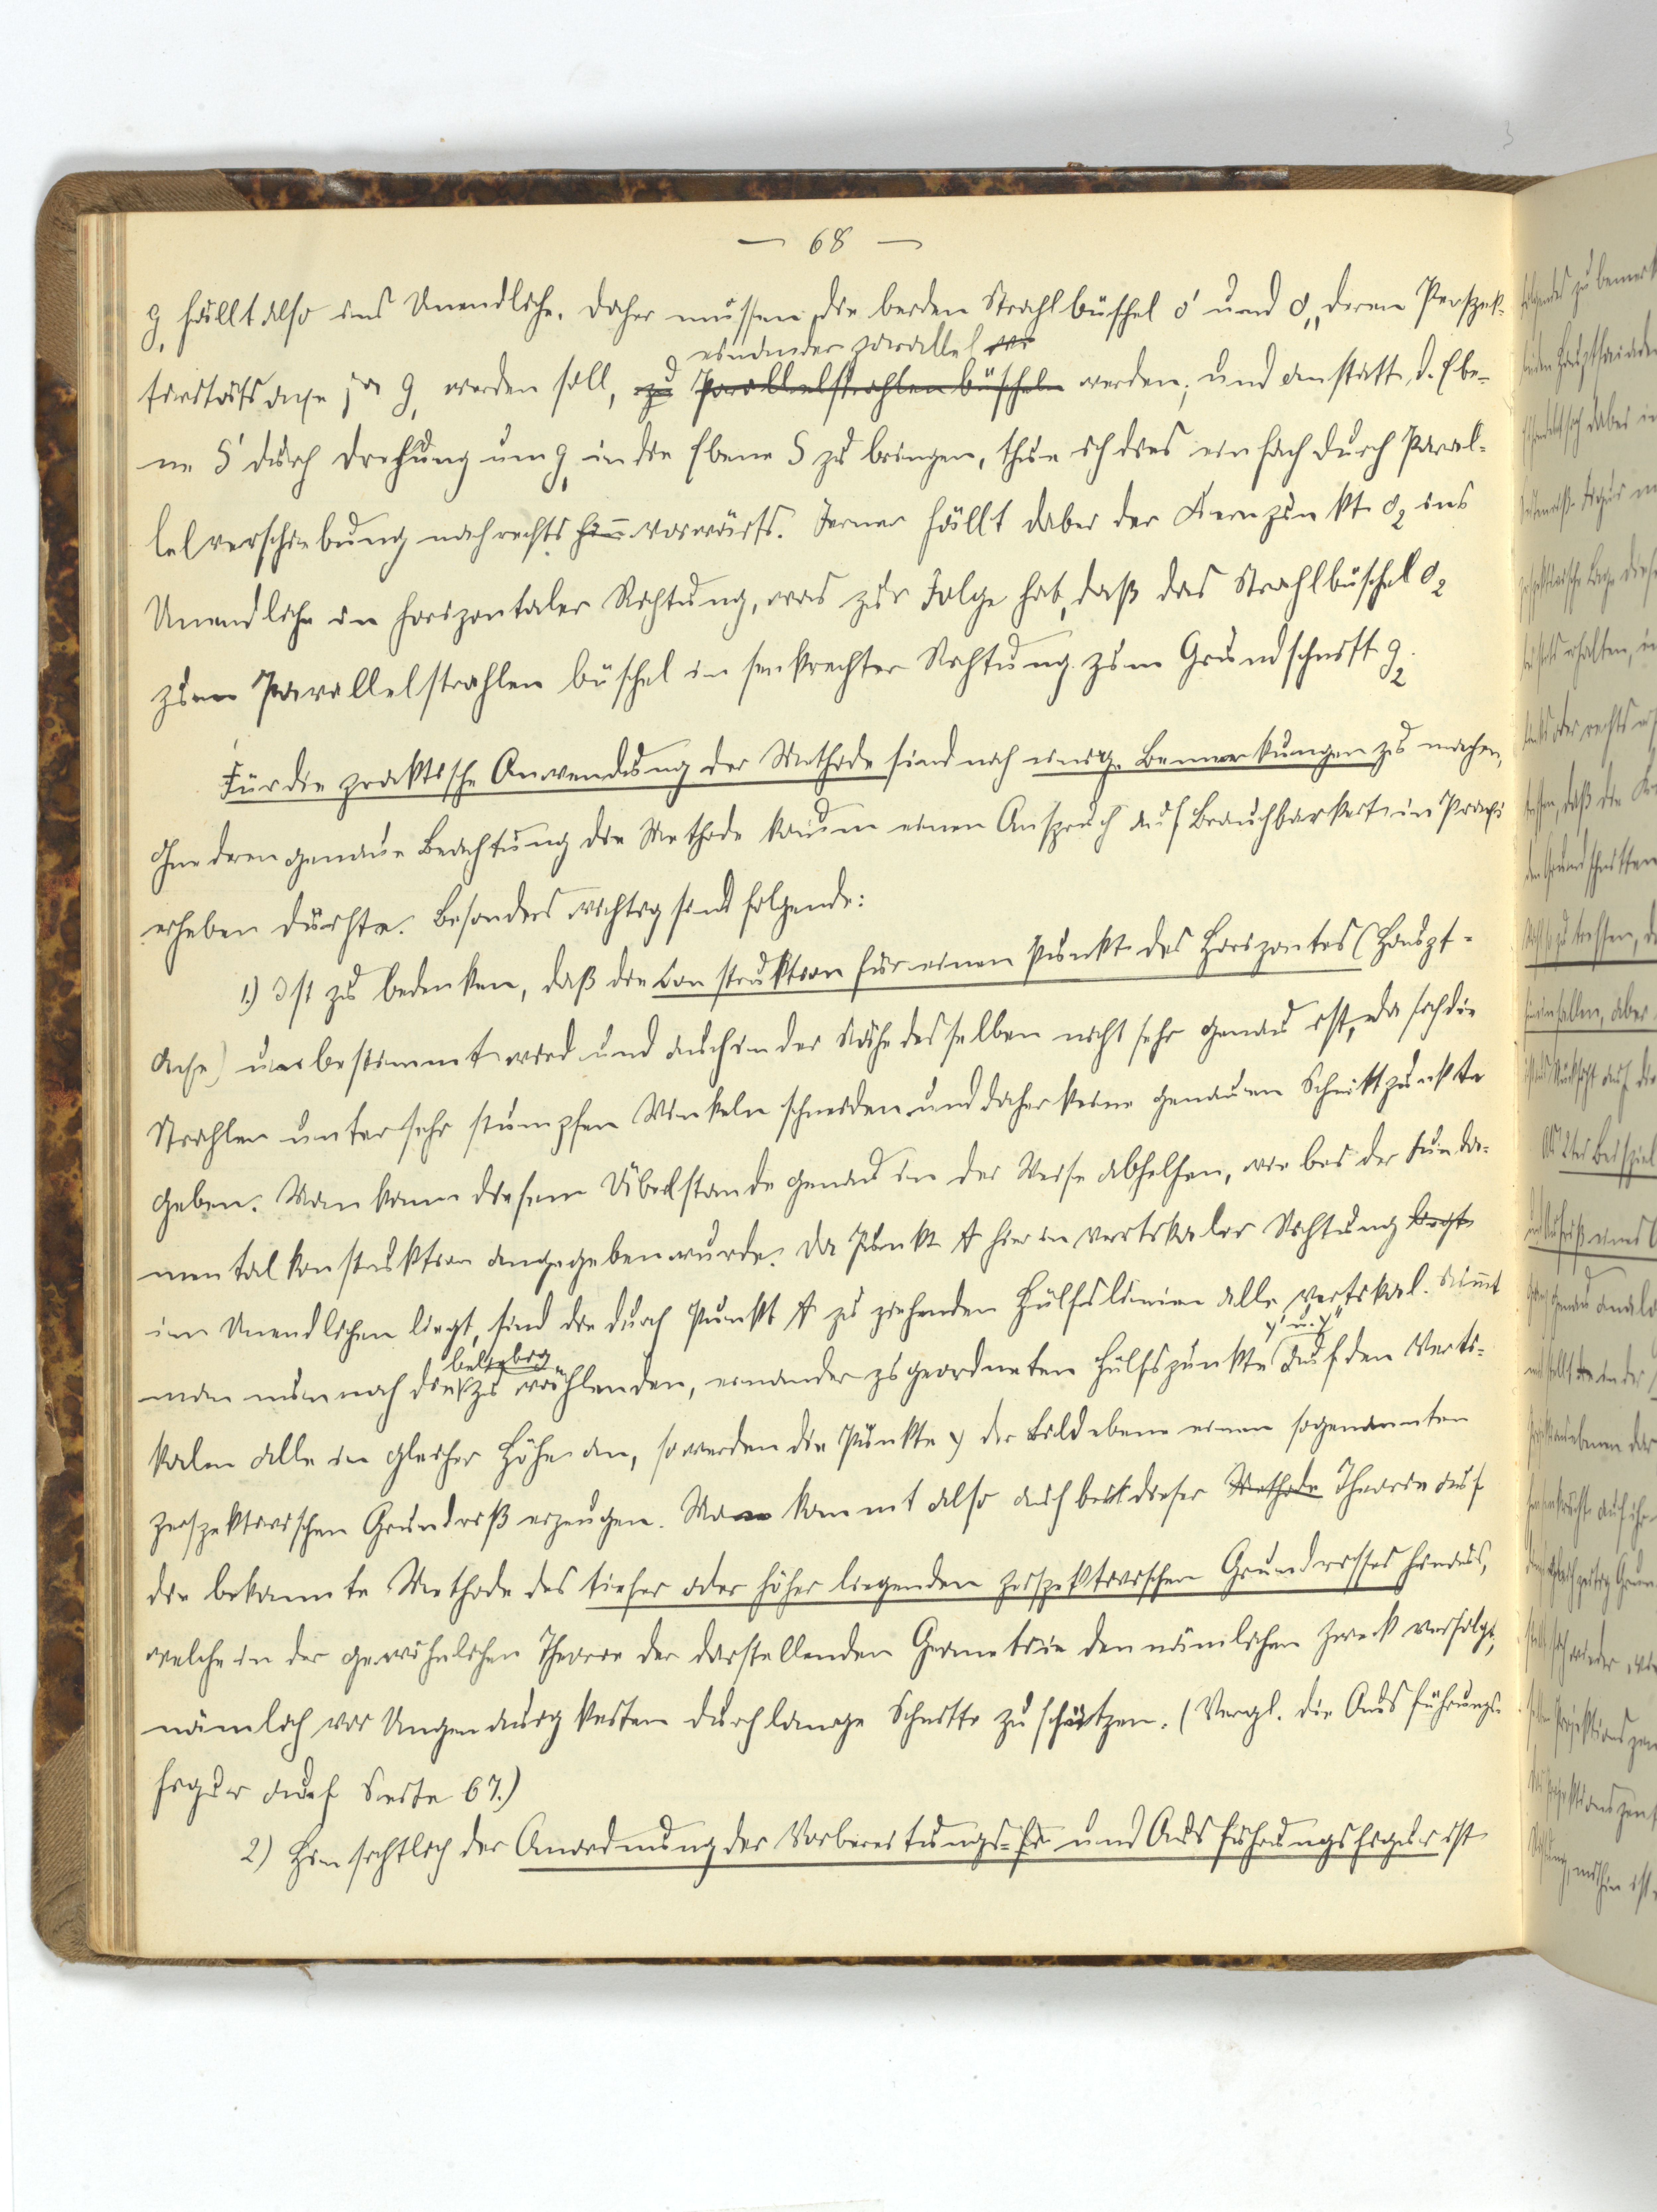 — 68 —
g, fällt also ins Unendliche. Daher müssen die beiden Strahlbüschel o' und o,, deren Perspek-
einander parallel
tivitätsaxe ja g, werden soll, zu Parallelstrahlenbüscheln werden; und anstatt d. Ebe-
ne S' durch Drehung um g, in die Ebene S zu bringen, thue ich dies einfach durch Paral-
lelverschiebung nach rechts hin vorwärts. Ferner fällt dabei der Kernpunkt o₂ ins
Unendliche in horizontaler Richtung, was zur Folge hat, daß das Strahlbüschel o₂
zum Parallelstrahlenbüschel in senkrechter Richtung zum Grundschnitt g₂.
Für die praktische Anwendung der Methode sind noch einige Bemerkungen zu machen,
ohne deren genaue Beachtung die Methode kaum einen Anspruch auf Brauchbarkeit in Praxi
erheben dürfte. Besonders wichtig sind folgende:
1.) Ist zu bedenken, daß die Construktion für einen Punkt des Horizontes (Haupt-
axe) unbestimmt wird und auch in der Nähe desselben nicht sehr genau ist, da sich die
Strahlen unter sehr stumpfen Winkeln schneiden und daher keine genauen Schnittpunkte
geben. Man kann diesem Übelstande genau in der Weise abhelfen, wie bei der Funda-
mentalkonstruktion angegeben wurde. Da Punkt A hier in vertikaler Richtung liegt
im Unendlichen liegt, sind die durch Punkt A zu ziehenden Hülfslinien alle vertikal. Nimmt
beliebig y' u. y''
man nun noch die zu wählenden, einander zugeordneten Hülfspunkte auf den Verti-
kalen alle in gleicher Höhe an, so werden die Punkte y der Bildebene einen sogenannten
perspektivischen Grundriß erzeugen. Man kommt also auch bei dieser Methode Theorie auf
die bekannte Methode des tiefer oder höher liegenden perspektivischen Grundrisses hinaus,
welche in der gewöhnlichen Theorie der darstellenden Geometrie den nämlichen Zweck verfolgt,
nämlich vor Ungenauigkeiten durch lange Schnitte zu schützen. (Vergl. die Ausführungs-
figur auf Seite 67.)
2) Hinsichtlich der Anordnung der Vorbereitungs-fi und Ausführungsfigur ist